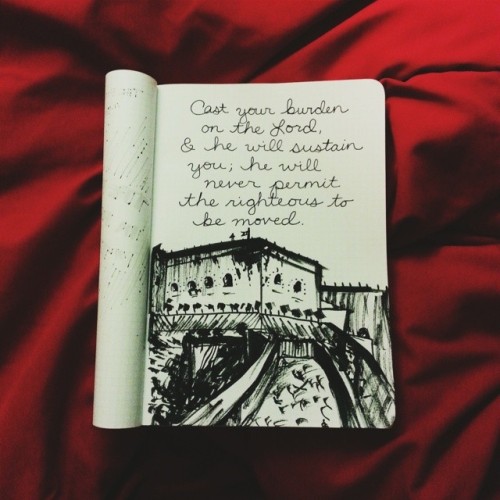 Cast your burden
on the Lord,
& he will sustain
you; he will
never permit
the righteous to
be moved.